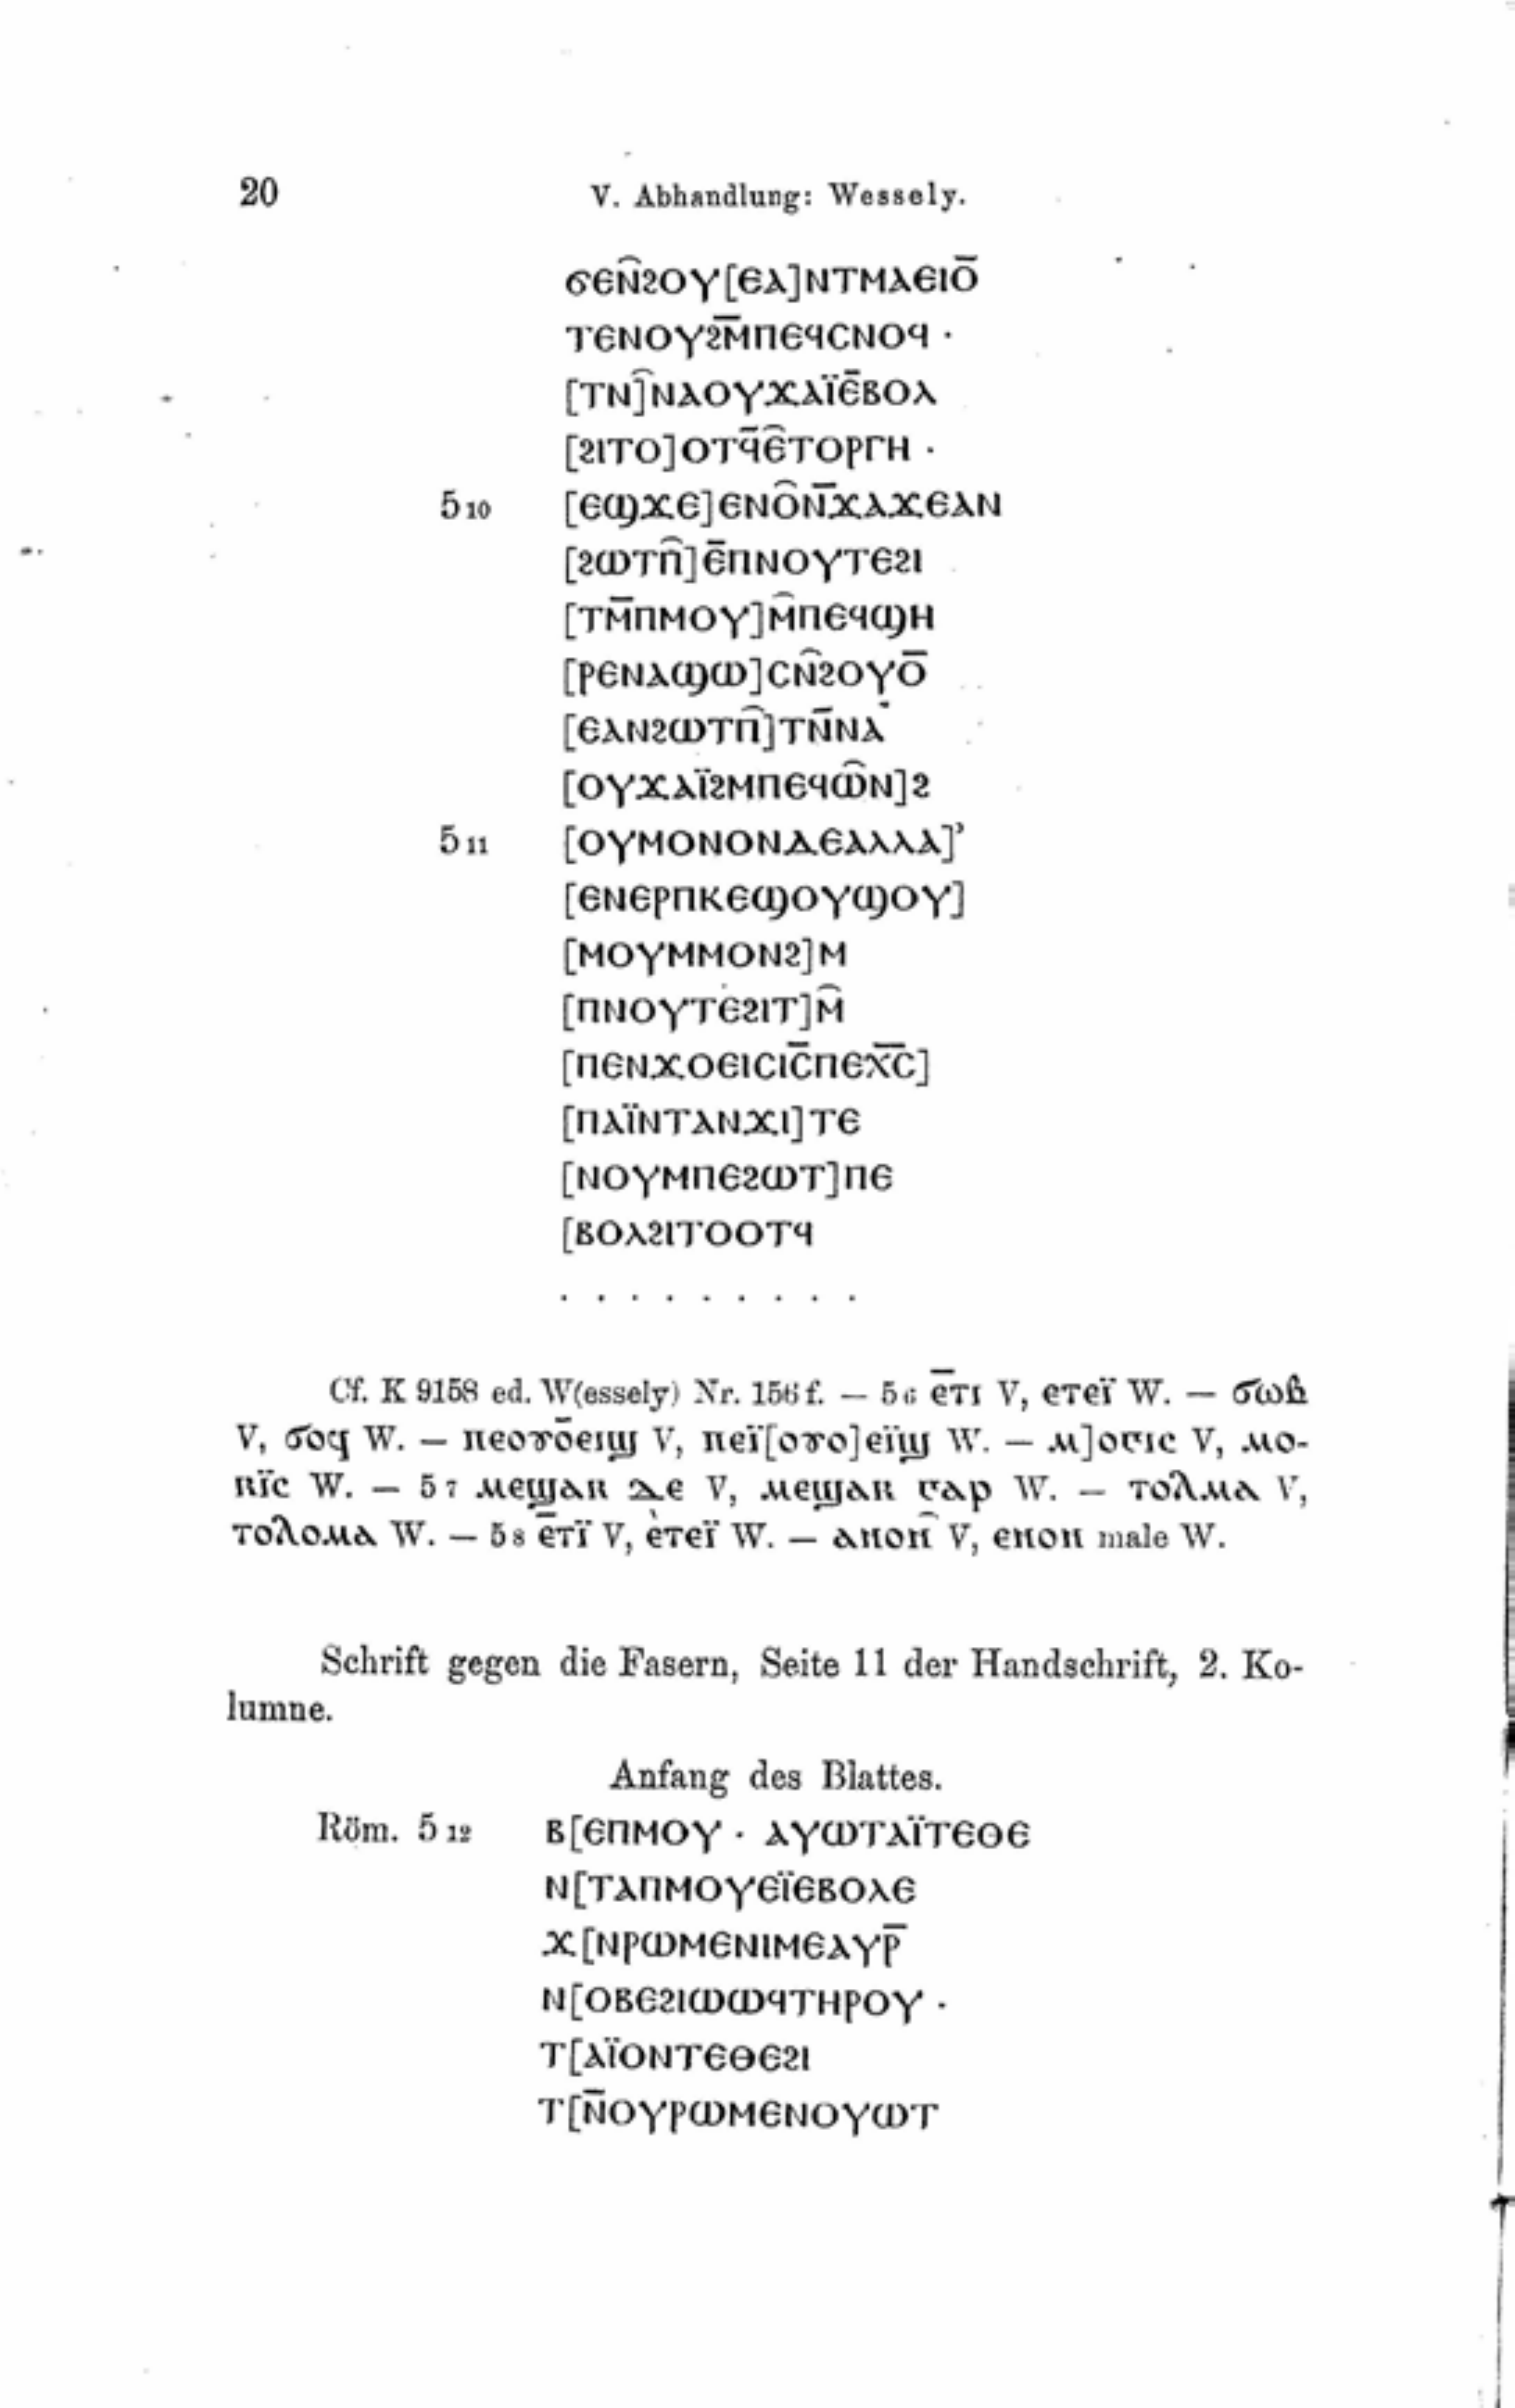 20 V. Abhandlung: Wessely.
ϭⲉⲛ̑ϩⲟⲩ[ⲉⲁ]ⲛⲧⲙⲁⲉⲓⲟ̅
ⲧⲉⲛⲟⲩϩⲙ̅ⲡⲉϥⲥⲛⲟϥ ·
[ⲧⲛ]̑ⲛⲁⲟⲩϫⲁⲓ̈ⲉ̅ⲃⲟⲗ
[ϩⲓⲧⲟ]ⲟⲧϥ̅ⲉ̑ⲧⲟⲣⲅⲏ ·
5 10 [ⲉϣϫⲉ]ⲉⲛⲟ̑ⲛ̅ϫⲁϫⲉⲁⲛ
[ϩⲱⲧⲡ̑]ⲉ̅ⲡⲛⲟⲩⲧⲉϩⲓ
[ⲧⲙ̅ⲡⲙⲟⲩ]ⲙ̑ⲡⲉϥϣⲏ
[ⲣⲉⲛⲁϣⲱ]ⲥⲛ̑ϩⲟⲩⲟ̅
[ⲉⲁⲛϩⲱⲧⲡ̑]ⲧⲛ̅ⲛⲁ̇
[ⲟⲩϫⲁⲓ̈ϩⲙⲡⲉϥⲱ̑ⲛ]ϩ
5 11 [ⲟⲩⲙⲟⲛⲟⲛⲇⲉⲁⲗⲗⲁ]ʾ
[ⲉⲛⲉⲣⲡⲕⲉϣⲟⲩϣⲟⲩ]
[ⲙⲟⲩⲙⲙⲟⲛϩ]ⲙ
[ⲡⲛⲟⲩⲧⲉϩⲓⲧ]ⲙ̑
[ⲡⲉⲛϫⲟⲉⲓⲥⲓⲥ̅ⲡⲉⲭ̅ⲥ̅]
[ⲡⲁⲓ̈ⲛⲧⲁⲛϫⲓ]ⲧⲉ
[ⲛⲟⲩⲙⲡⲉϩⲱⲧ]ⲡⲉ
[ⲃⲟⲗϩⲓⲧⲟⲟⲧϥ
. . . . . . . . .
Cf. K 9158 ed. W(essely) Nr. 156 f. — 5 6 ⲉ̅ⲧⲓ V, ⲉⲧⲉⲓ̈ W. — ϭⲱⲃ
V, ϭⲟϥ W. — ⲡⲉⲟⲩⲟ̅ⲉⲓϣ V, ⲡⲉⲓ̈[ⲟⲩⲟ]ⲉⲓ̈ϣ W. — ⲙ]ⲟⲅⲓⲥ V, ⲙⲟ-
ⲕⲓ̈ⲥ W. — 5 7 ⲙⲉϣⲁⲕ ⲇⲉ V, ⲙⲉϣⲁⲕ ⲅⲁⲣ W. — ⲧⲟⲗⲙⲁ V,
ⲧⲟⲗⲟⲙⲁ W. — 5 8 ⲉ̅ⲧⲓ̈ V, ⲉ̀ⲧⲉⲓ̈ W. — ⲁⲛⲟⲛ̑ V, ⲉⲛⲟⲛ male W.
Schrift gegen die Fasern, Seite 11 der Handschrift, 2. Ko-
lumne.
Anfang des Blattes.
Röm. 5 12 ⲃ[ⲉⲡⲙⲟⲩ · ⲁⲩⲱⲧⲁⲓ̈ⲧⲉⲑⲉ
ⲛ[ⲧⲁⲡⲙⲟⲩⲉⲓ̈ⲉⲃⲟⲗⲉ
ϫ[ⲛⲣⲱⲙⲉⲛⲓⲙⲉⲁⲩⲣ̅
ⲛ[ⲟⲃⲉϩⲓⲱⲱϥⲧⲏⲣⲟⲩ ·
ⲧ[ⲁⲓ̈ⲟⲛⲧⲉⲑⲉϩⲓ
ⲧ[ⲛ̅ⲟⲩⲣⲱⲙⲉⲛⲟⲩⲱⲧ